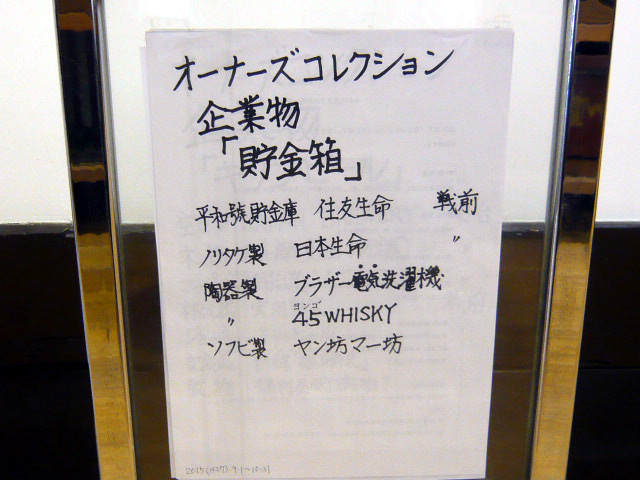 オーナーズコレクション
企業物
「貯金箱」
平和號貯金庫 住友生命 戦前
ノリタケ製 日本生命 〃
陶器製 ブラザー電気洗濯機
ヨンゴ
〃 45WHISKY
ソフビ製 ヤン坊マー坊